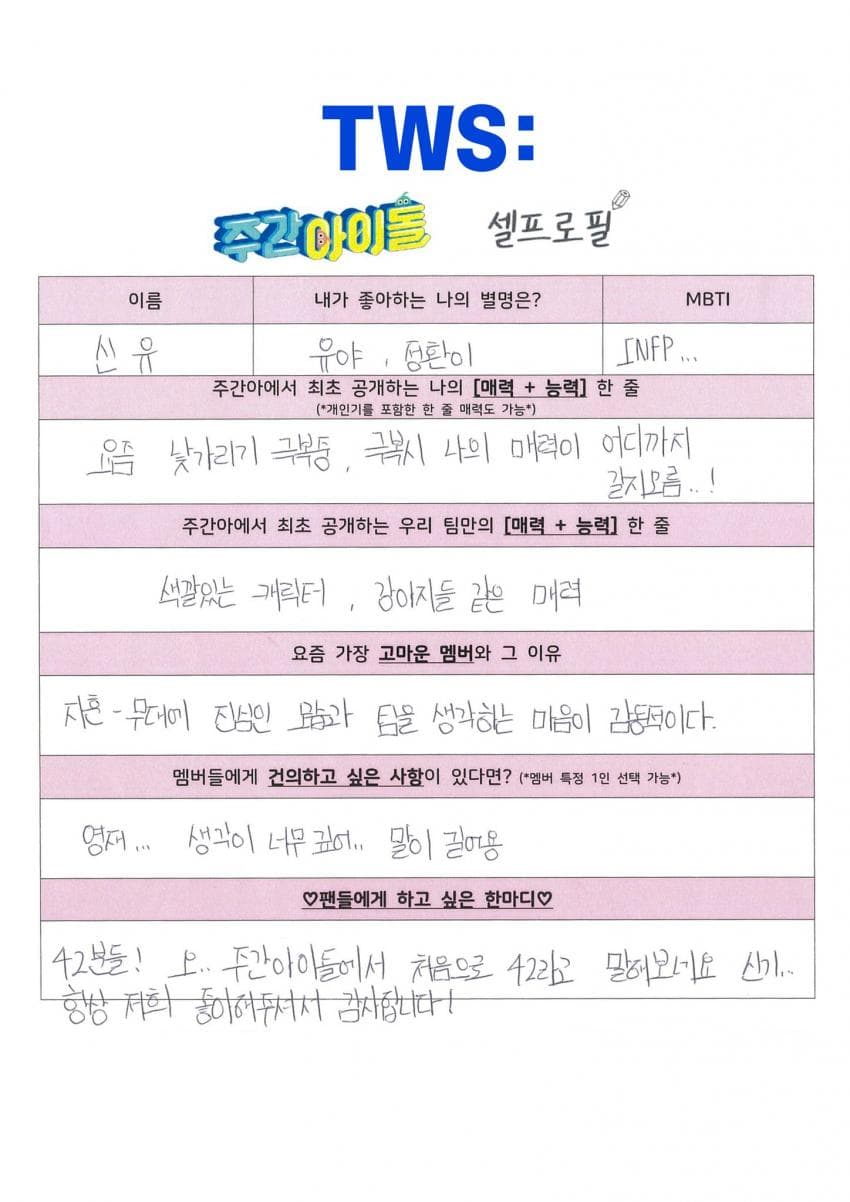 TWS:
주간아이돌 셀프로필
이름 내가 좋아하는 나의 별명은? MBTI
신유 유야, 정환이 INFP...
주간아에서 최초 공개하는 나의 [매력 + 능력] 한 줄
(*개인기를 포함한 한 줄 매력도 가능*)
요즘 낯가리기 극복중, 극복시 나의 매력이 어디까지
갈지모름..!
주간아에서 최초 공개하는 우리 팀만의 [매력 + 능력] 한 줄
색깔있는 캐릭터, 강아지들 같은 매력
요즘 가장 고마운 멤버와 그 이유
지훈 - 무대에 진심인 모습과 팀을 생각하는 마음이 감동적이다.
멤버들에게 건의하고 싶은 사항이 있다면? (*멤버 특정 1인 선택 가능*)
영재... 생각이 너무 깊어.. 말이 길어용
♡팬들에게 하고 싶은 한마디♡
42분들! 오.. 주간아이돌에서 처음으로 42라고 말해보네요 신기..
항상 저희 좋아해주셔서 감사합니다!